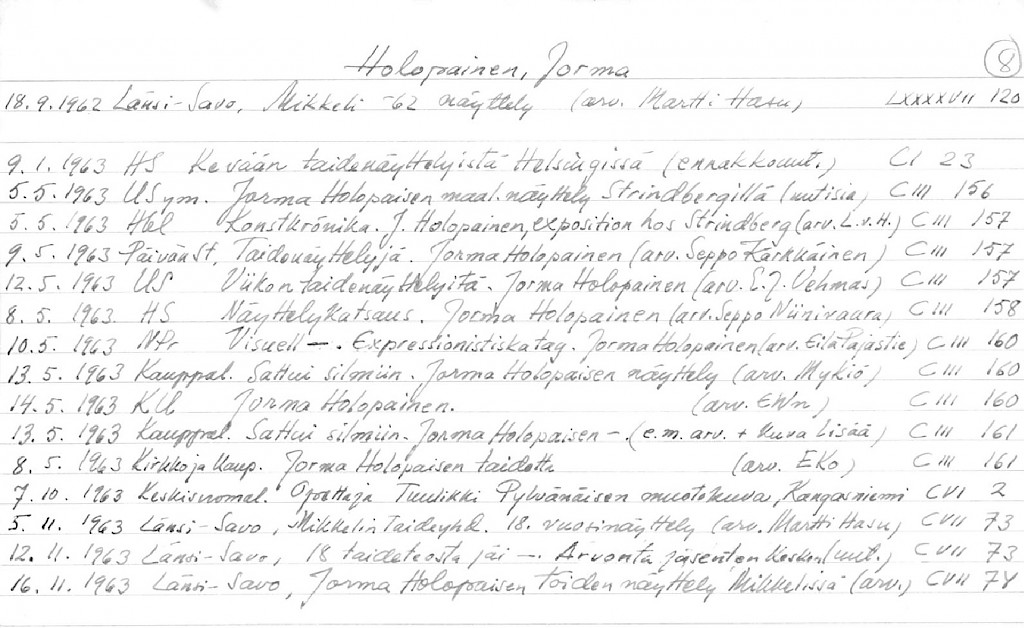 Holopainen, Jorma
8
18.9.1962 Länsi-Savo, Mikkeli -62 näyttely (arv. Martti Hasu) LXXXXVII 120
9.1.1963 HS Kevään taidenäyttelyistä Helsingissä (ennakkouut.) CI 23
5.5.1963 USym. Jorma Holopaisen maal.näyttely Strindbergillä (uutisia) CIII 156
5.5.1963 Hbl Konstkrönika. J. Holopainen, exposition hos Strindberg (arv. L.v.H.) CIII 157
9.5.1963 PäivänSt, Taidenäyttelyjä. Jorma Holopainen (arv. Seppo Kärkkäinen) CIII 157
12.5.1963 US Viikon taidenäyttelyitä. Jorma Holopainen (arv. E.J. Vehmas) CIII 157
8.5.1963 HS Näyttelykatsaus. Jorma Holopainen (arv. Seppo Niinivaara) CIII 158
10.5.1963 NPr Visuell —. Expressionistiska tag. Jorma Holopainen (arv. Eila Pajastie) CIII 160
13.5.1963 Kauppal. Sattui silmiin. Jorma Holopaisen näyttely (arv. Mykiö) CIII 160
14.5.1963 KU Jorma Holopainen. (arv. EWn) CIII 160
13.5.1963 Kauppal. Sattui silmiin. Jorma Holopaisen —. (e.m. arv. + kuva Lisää) CIII 161
8.5.1963 Kirkko ja Kaup. Jorma Holopaisen taidetta (arv. EKo) CIII 161
7.10.1963 Keskisuomal. Opettaja Tuulikki Pylvänäisen muotokuva, Kangasniemi CVI 2
5.11.1963 Länsi-Savo, Mikkelin Taideyhd. 18. vuosinäyttely (arv. Martti Hasu) CVII 73
12.11.1963 Länsi-Savo, 18 taideteosta jäi —. Arvonta jäsenten kesken (uut.) CVII 73
16.11.1963 Länsi-Savo, Jorma Holopaisen töiden näyttely Mikkelissä (arv.) CVII 74